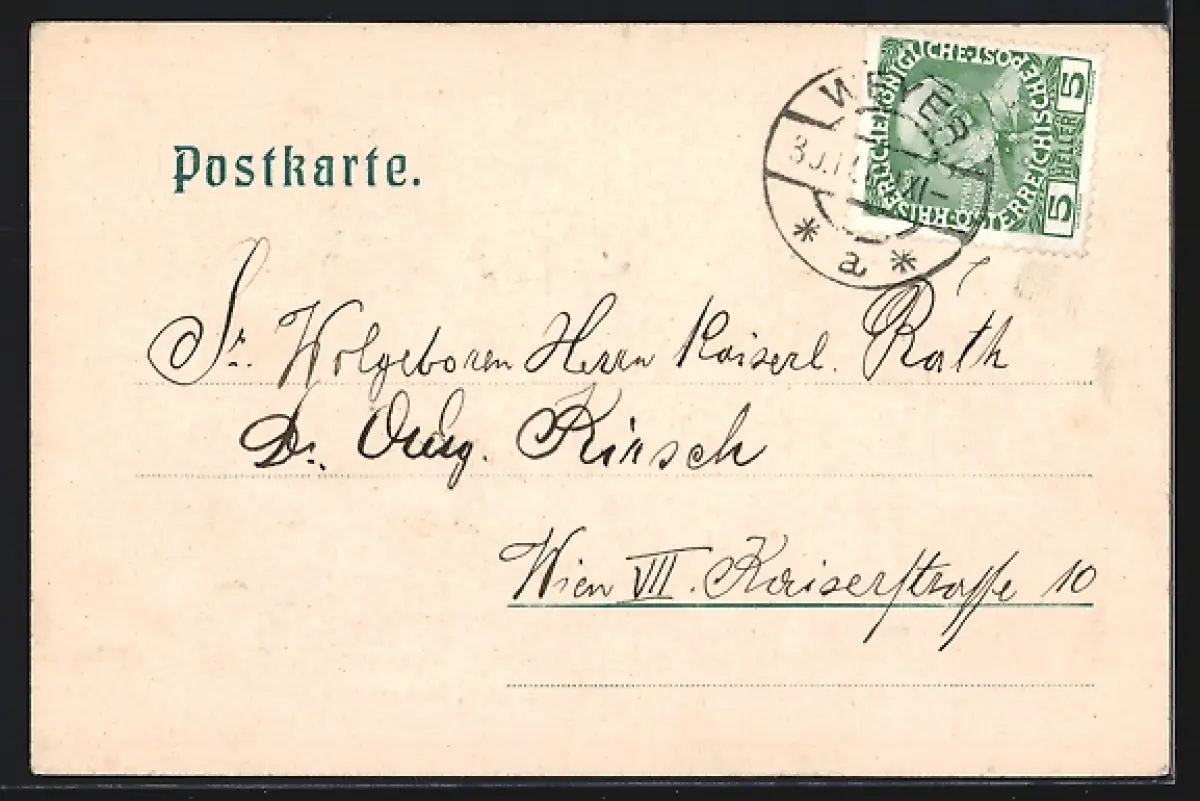 Postkarte.
WEYER
a
KAISERLICHE KÖNIGLICHE ÖSTERREICHISCHE POST
5 HELLER 5
Sr. Wolgeboren Herrn Kaiserl. Rath
Dr. Aug. Kirsch
Wien VII. Kaiserstrasse 10